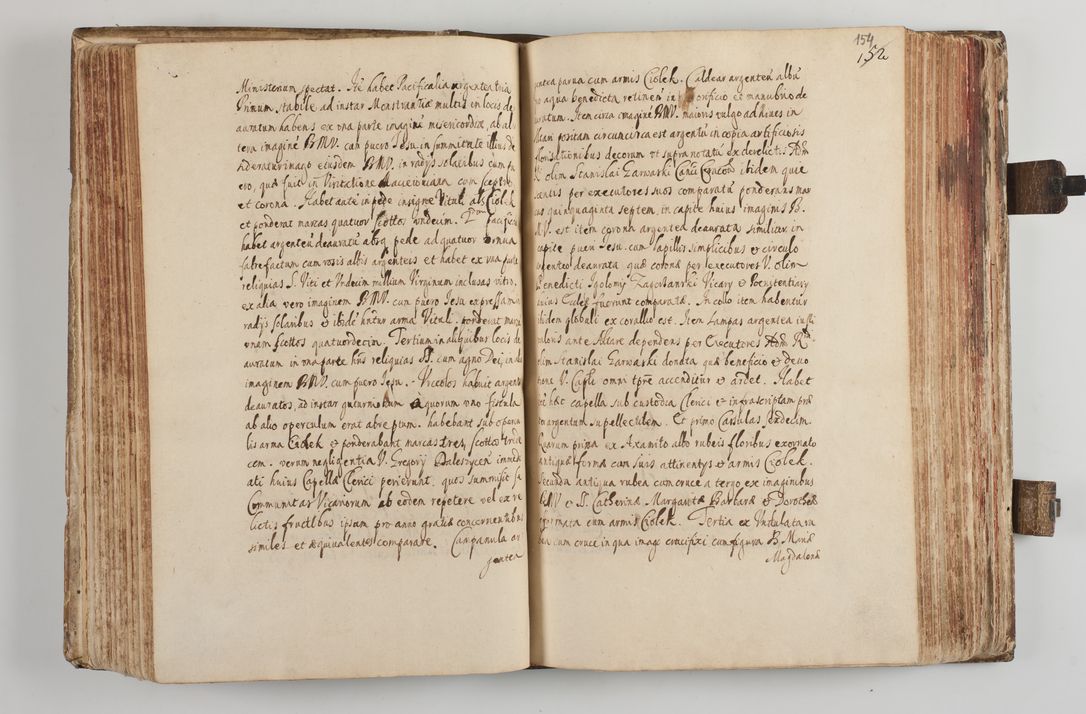 Ministorum spectat. Ite habet Pacificalia argentea tria
Primum, stabile ad instar Monstrantiæ multis in locis de
auratum habens ex vna parte imagine misericordiæ, ab al
tera imagine BMV. cum puero Jesu, in summitate illius de
sideratur imago eiusdem BMV. in radijs solaribus cum pu
ero, quæ fuit in Visitatione Macieioviana cum sceptro
et corona. Habet ante in pede insigne Vitul. als Ciołek
et ponderat marcas quatuor scottos vndecim. Pacifica
habet argenteu deauratu absq pede ad quatuor cornua
fabrefactum cum rosis albis argenteis et habet ex vna parte
reliquias S. Viti et Vndecim millium Virginum inclusas vitro,
ex alia vero imaginem BMV. cum puero Jesu expressam in
radijs solaribus et ibide hntur arma Vitul. ponderat marca
vnam scottos quatuordecim. Tertium in aliquibus locis de
auratum in vna parte hns reliquias SS. cum agno Dei, in alia
imaginem BMV. cum puero Jesu. Vrceolos habuit argenti
deauratos, ad instar guturniorum quorum vno fistula
ab alio operculum erat abreptum. habebant sub opercu
lis arma Ciołek et ponderabant marcas tres, scottos trede
cem. verum negligentia V. Gregorij Daleszyceń immedi
ati huius Capellæ Clerici perierunt. quos summisit se
Communitas Vicariorum ab eodem repetere vel ex re
lictis fructibus ipsam pro anno gratiæ concernentibus
similes et æquivalentes comparare. Campanula ar
gentea
154
152
gentea parua cum armis Ciołek. Caldear argenteu albu
pro aqua benedicta retinen in orificio et manubrio de
auratum. Item circa imagine BMV. maioris vulgo ad Niues in
Altari positam circumcirca est argentu in copia artificiosis
elaborationibus decorum vt supra notatu ex derelict. Adm
R. olim Stanislai Garwaski Canci Cracoń ibidem quie
scentis per executores suos comparatu ponderans mar
cas quinquaginta septem, in capite huius imaginis B.
M.V. est item corona argentea deaurata similiter in
capite pueri Jesu cum lapillis simplicibus et circulo
argenteo deaurata quæ corona per executores V. olim
Benedicti Igolomy Zagorzanski Vicary et Pœnitentiary
huius Eccles fuerunt comparatæ. In collo item habentur
ibidem globuli ex corallio est. Item Lampas argentea
valoris ante Altare dependens per Executores Adm Rd
olim Stanislai Garwaski donata quæ beneficio et deuo
tione V. Capli omni tpre accenditur et ardet. Habet
et hæc capella sub custodia Clerici et infrascriptam præ
ter argentum supellectilem. Et primo Casulas sedecim.
Quarum prima ex Axamito albo rubeis floribus exornato
antiquæ formæ cum suis attinentijs et armis Ciołek.
Secunda antiqua rubea cum cruce a tergo ex imaginibus
BMV et S. Catherinæ Margaretæ Barbaræ et Dorotheæ
efformata cum armis Ciołek. Tertia ex Vndulata ru
bea cum cruce in qua imago crucifixi cum figura B. Mariæ
Magdalenæ